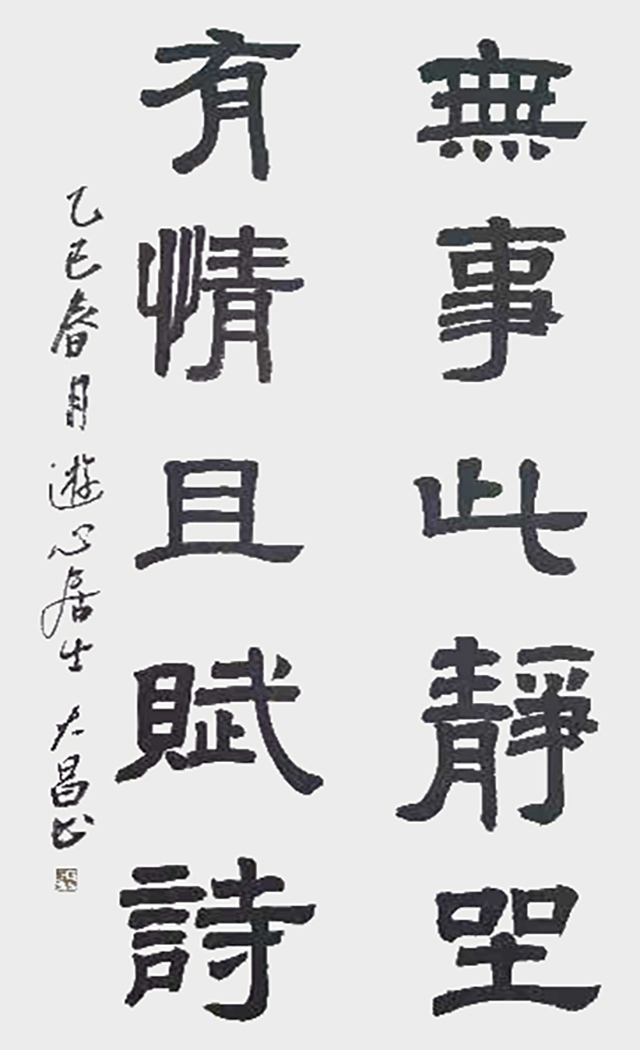 無事此靜坐
有情且賦詩
乙巳春月遊心居生大昌書